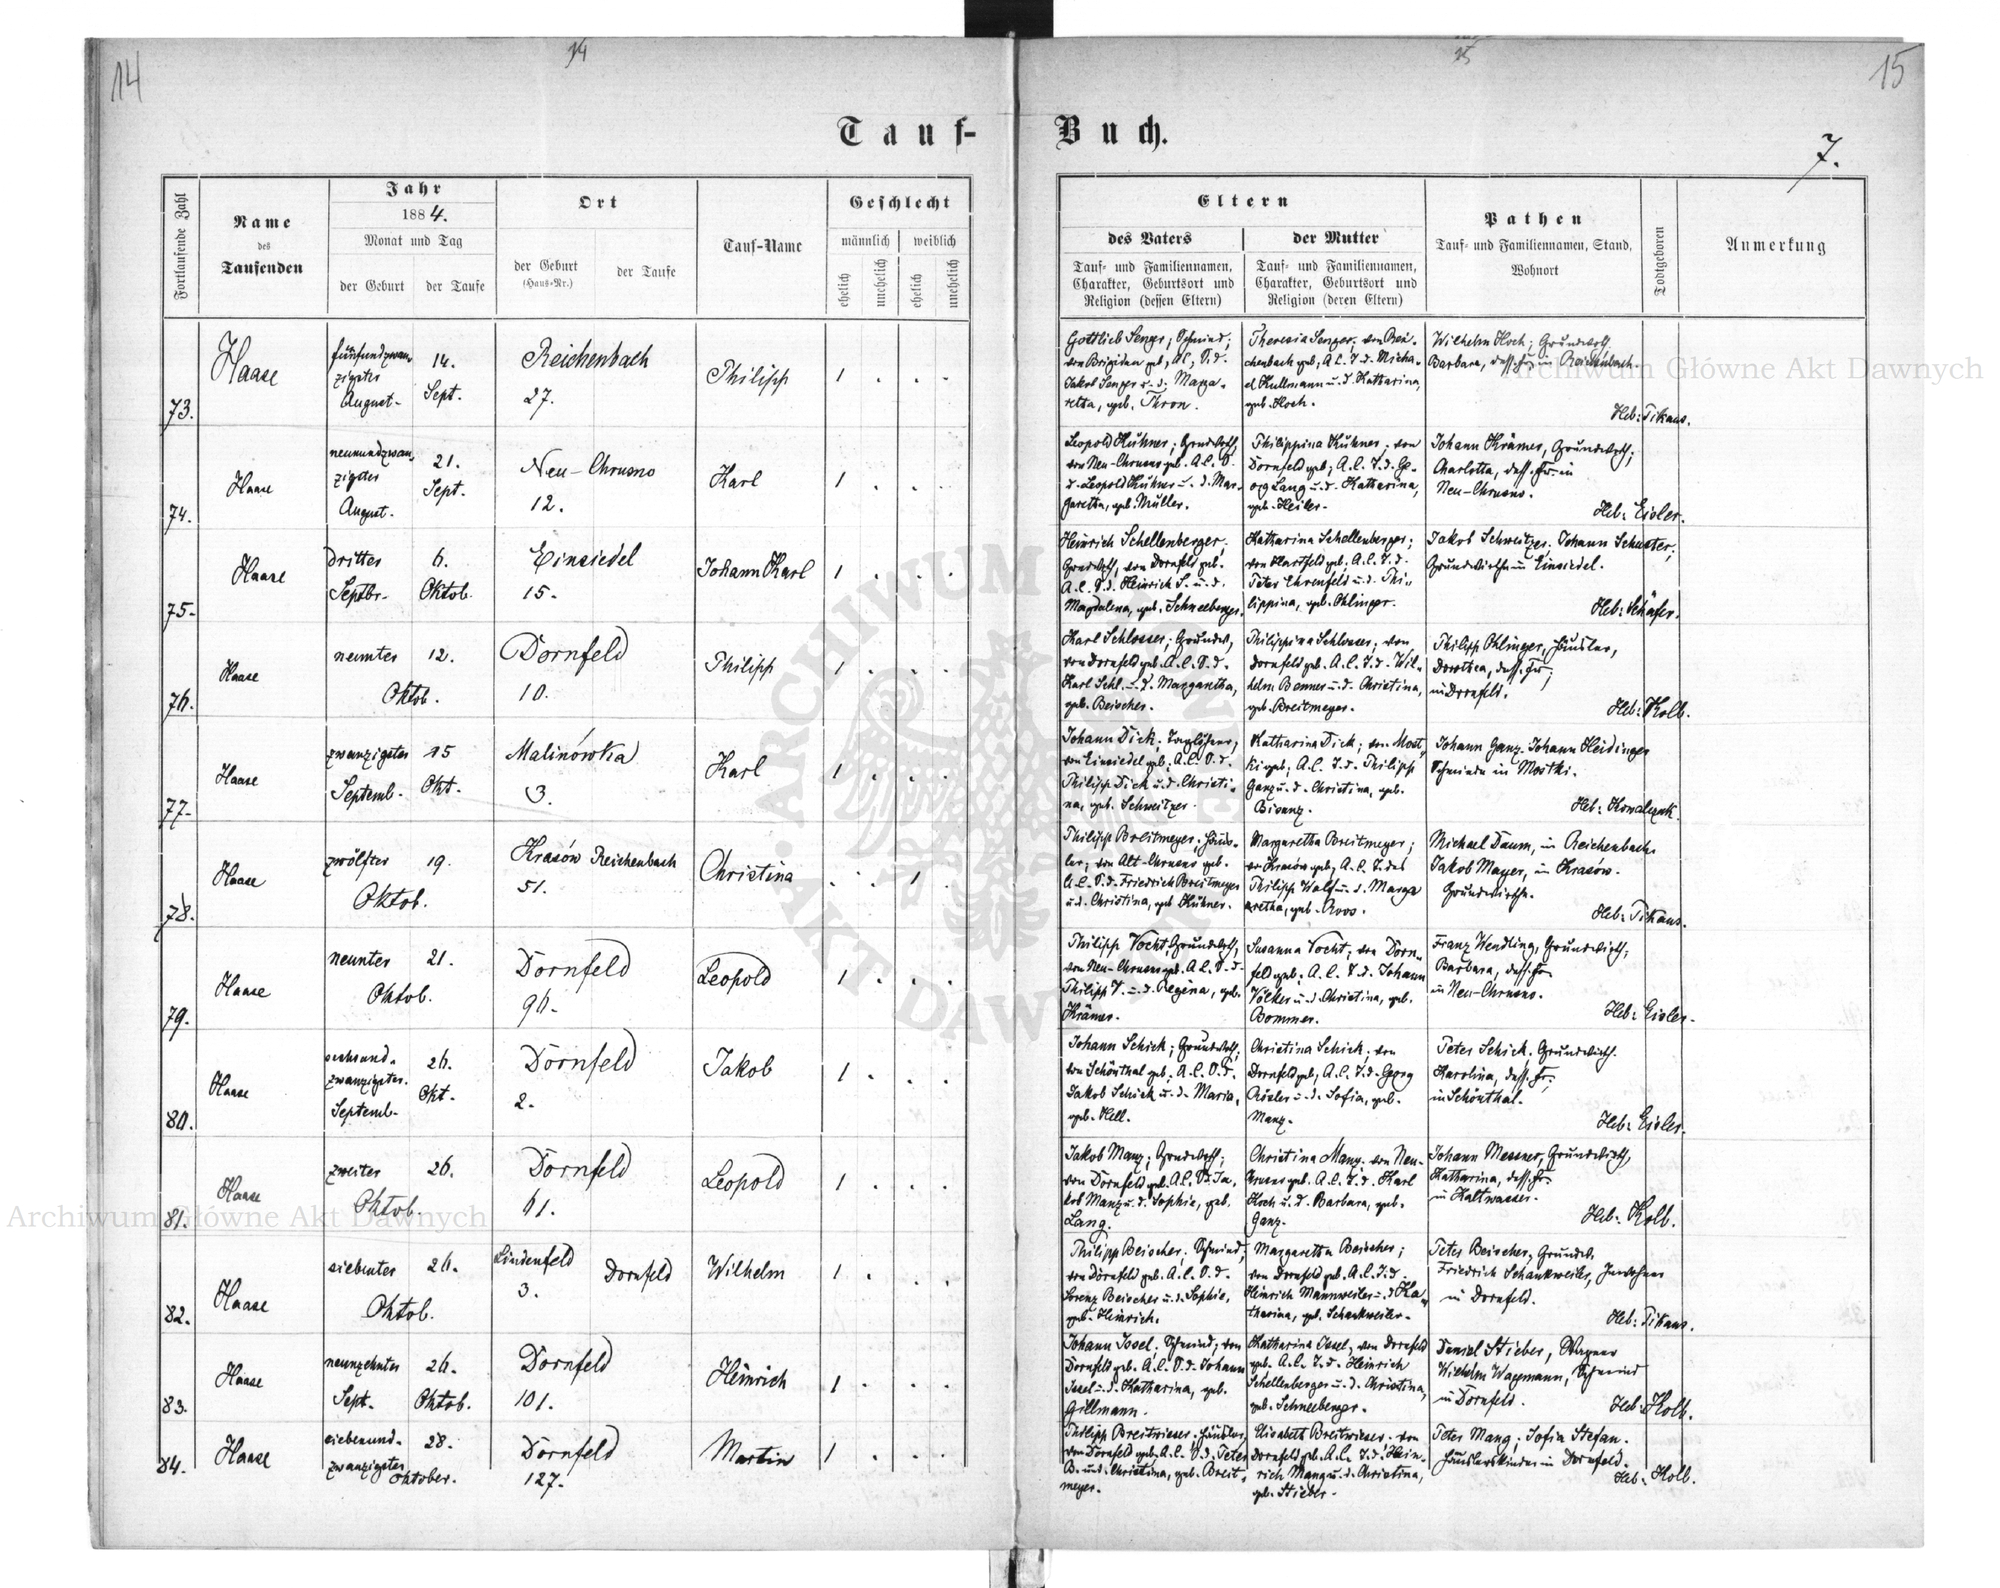 14
14
15
15
Tauf-
Buch.
7.
Fortlaufende Zahl
Name
des
Taufenden
Jahr
1884.
Monat und Tag
der Geburt
der Taufe
Ort
der Geburt
(Haus-Nr.)
der Taufe
Tauf-Name
Geschlecht
männlich
weiblich
ehelich
unehelich
ehelich
unehelich
Eltern
des Vaters
der Mutter
Tauf- und Familiennamen,
Charakter, Geburtsort und
Religion (dessen Eltern)
Tauf- und Familiennamen,
Charakter, Geburtsort und
Religion (deren Eltern)
Pathen
Tauf- und Familiennamen, Stand,
Wohnort
Todtgeboren
Anmerkung
73.
Haase
fünfundzwan-
zigster
August-
14.
Sept.
Reichenbach
27.
Philipp
1 . . .
Gottlieb Senger; Schmind;
von Brigidau geb., AC, S.d.
Jakob Senger u. d. Marga-
retha, geb. Thron.
Theresia Senger, von Rei-
chenbach geb; A.C. T.d. Micha-
el Kullmann u. d. Katharina,
geb. Koch.
Wilhelm Koch; Grundwth.
Barbara, dess. Fr. in Reichenbach.
Heb: Tikaus.
74.
Haase
neunundzwan-
zigster
August.
21.
Sept.
Neu-Chrusno
12.
Karl
1 . .
Leopold Kühner; Grndwth,
von Neu-Chrusno geb. A.C. S.
d. Leopold Kühner u. d. Mar-
garetha, geb. Müller.
Philippina Kühner; von
Dornfeld geb; A.C. T.d. Ge-
org Lang u. d. Katharina,
geb. Heiler.
Johann Krämer, Grundwth;
Charlotta, dess. Fr. in
Neu-Chrusno.
Heb: Eisler.
75.
Haase
dritter
Septbr.
6.
Oktob.
Einsiedel
15.
Johann Karl
1 . . .
Heinrich Schellenberger;
Grndwth, von Dornfeld geb.
A.C. S.d. Heinrich S. u. d.
Magdalena, geb. Schneeberger.
Katharina Schellenberger;
von Hartfeld geb; A.C. T.d.
Peter Ehrenfeld u. d. Phi-
lippina, geb. Ohlinger.
Jakob Schweitzer; Johann Schuster;
Grundwirthe in Einsiedel.
Heb: Schäfer.
76.
Haase
neunter
Oktob.
12.
Dornfeld
10.
Philipp
1 . . .
Karl Schlosser; Grundw,
von Dornfeld geb. A.C. S.d.
Karl Schl. u. d. Margaretha,
geb. Beischer.
Philippina Schlosser; von
Dornfeld geb. A.C. T.d. Wil-
helm Bommer u. d. Christina,
geb. Breitmeyer.
Philipp Ohlinger, Häusler,
Dorothea, dess. Fr;
in Dornfeld.
Heb: Kolb.
77.
Haase
zwanzigster
Septemb.
15
Okt.
Malinówka
3.
Karl
1 . . .
Johann Dick; Taglöhner,
von Einsiedel geb; A.C. S.d.
Philipp Dick u. d. Christi-
na, geb. Schweitzer.
Katharina Dick; von Most-
ki geb; A.C. T.d. Philipp
Ganz u. d. Christina, geb.
Bisanz.
Johann Ganz. Johann Heidinger
Schmiede in Mostki.
Heb: Kowalczuk.
78.
Haase
zwölfter
Oktob.
19.
Krasów Reichenbach
51.
Christina
. . 1 .
Philipp Breitmeyer. Häus-
ler; von Alt-Chrusno geb.
A.C. S.d. Friedrich Breitmeyer
u. d. Christina, geb Kühner.
Margaretha Breitmeyer;
von Krasów geb; A.C. T. des
Philipp Walf u. d. Marga
retha, geb. Roos.
Michael Daum, in Reichenbach.
Jakob Mayer, in Krasów.
Grundwirthe.
Heb: Tikaus.
79.
Haase
neunter
Oktob.
21.
Dornfeld
96.
Leopold
1 . . .
Philipp Vocht Grundwth,
von Neu-Chrusno geb. A.C. S.d.
Philipp V. u. d. Regina, geb.
Krämer.
Susanna Vocht, von Dorn-
feld geb; A.C. T.d. Johann
Völker u. d. Christina, geb.
Bommer.
Franz Wendling, Grundwirth;
Barbara, dess. Fr.
in Neu-Chrusno.
Heb: Eisler.
80.
Haase
sechsund-
zwanzigster.
Septemb.
26.
Okt.
Dornfeld
2.
Jakob
1 . . .
Johann Schick; Grundwth;
von Schönthal geb; A.C. S.d.
Jakob Schick u. d. Maria,
geb. Hell.
Christina Schick; von
Dornfeld geb, A.C. T.d. Georg
Rösler u. d. Sofia, geb.
Manz.
Peter Schick. Grundwirth.
Karolina, dess. Fr;
in Schönthal.
Heb: Eisler.
81.
Haase
zweiter
Oktob.
26.
Dornfeld
61.
Leopold
1 . . .
Jakob Manz; Grndwth;
von Dornfeld geb. A.C. S.d. Ja-
kob Manz u. d. Sophie, geb.
Lang.
Christina Manz. von Neu-
Chrusno geb. A.C. T.d. Karl
Koch u. d. Barbara, geb.
Ganz.
Johann Messner, Grundwirth,
Katharina, dess. Fr.
in Kaltwasser.
Heb: Kolb.
82.
Haase
siebenter
Oktob.
26.
Lindenfeld
3.
Dornfeld
Wilhelm
1 . . .
Philipp Beischer; Schmind;
von Dornfeld geb. A.C. S.d.
Lorenz Beischer u. d. Sophie,
geb. Heinrich.
Margaretha Beischer;
von Dornfeld geb. A.C. T.d.
Heinrich Mannweiler u. d. Ka-
tharina, geb. Schankweiler.
Peter Beischer, Grundw.
Friedrich Schankweiler, Inwohner
in Dornfeld.
Heb: Tikaus.
83.
Haase
neunzehnter
Sept.
26.
Oktob.
Dornfeld
101.
Heinrich
1 . . .
Johann Issel; Schmind; von
Dornfeld geb. A.C. S.d. Johann
Issel u. d. Katharina, geb.
Gillmann.
Katharina Issel, von Dornfeld
geb. A.C. T.d. Heinrich
Schellenberger u. d. Christina,
geb. Schneeberger.
Daniel Stieber, Wagner
Wilhelm Wagemann, Schmind
in Dornfeld.
Heb: Kolb.
84.
Haase
siebenund-
zwanzigster
Oktober.
28.
Dornfeld
127.
Martin
1 . . .
Philipp Breitwieser. Häusler,
von Dornfeld geb. A.C. S.d. Peter
B. u. d. Christina, geb. Breit-
meyer.
Elisabeth Breitwieser. von
Dornfeld geb. A.C. T.d. Hein-
rich Mang u. d. Christina,
geb. Stieber.
Peter Mang; Sofia Stefan.
Häuslerskinder in Dornfeld.
Heb: Kolb.
Archiwum Główne Akt Dawnych
Archiwum Główne Akt Dawnych